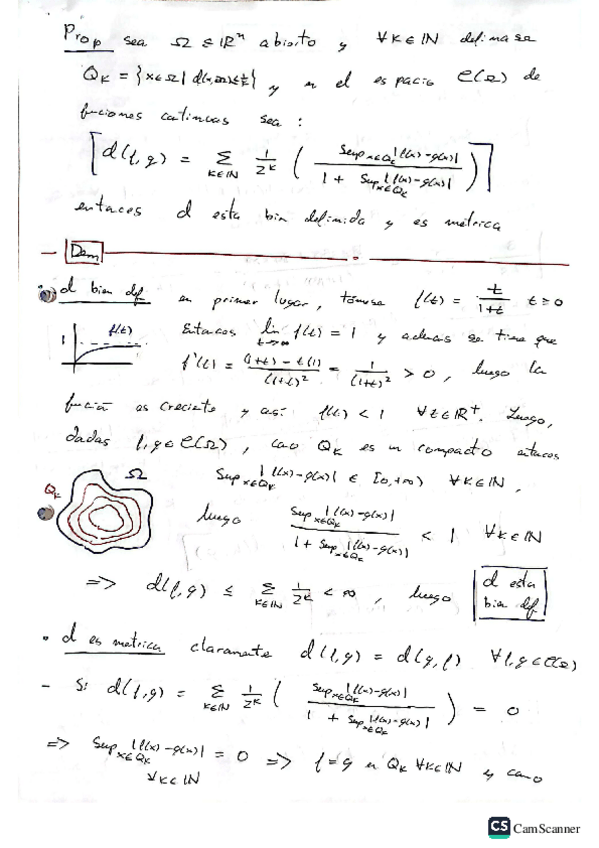 Prop sea Ω ⊆ ℝⁿ abierto y ∀k∈ℕ definase
Q_k = {x∈Ω | d(x,∂Ω) ≤ 1/k} y en el espacio C(Ω) de
funciones continuas sea:
[d(f,g) = Σ_{k∈ℕ} 1/2^k ( Sup_{x∈Q_k}|f(x)-g(x)| / (1 + Sup_{x∈Q_k}|f(x)-g(x)|) )]
entonces d esta bien definida y es métrica
Dem
• d bien def en primer lugar, tómese f(t) = t/(1+t) t≥0
Entonces lim_{t→∞} f(t) = 1 y además se tiene que
1 f(t)
f'(t) = ((1+t) - t(1))/(1+t)² = 1/(1+t)² > 0, luego la
función es creciente y así f(t) < 1 ∀t∈ℝ⁺. Luego,
dadas f,g∈C(Ω), como Q_k es un compacto entonces
Sup_{x∈Q_k}|f(x)-g(x)| ∈ [0,+∞) ∀k∈ℕ,
Ω
Q_k
luego Sup_{x∈Q_k}|f(x)-g(x)| / (1 + Sup_{x∈Q_k}|f(x)-g(x)|) < 1 ∀k∈ℕ
⇒ d(f,g) ≤ Σ_{k∈ℕ} 1/2^k < ∞, luego d esta
bien def
• d es metrica claramente d(f,g) = d(g,f) ∀f,g∈C(Ω)
- Si d(f,g) = Σ_{k∈ℕ} 1/2^k ( Sup_{x∈Q_k}|f(x)-g(x)| / (1 + Sup_{x∈Q_k}|f(x)-g(x)|) ) = 0
⇒ Sup_{x∈Q_k}|f(x)-g(x)| = 0 ⇒ f=g en Q_k ∀k∈ℕ y como
∀k∈ℕ
CS CamScanner